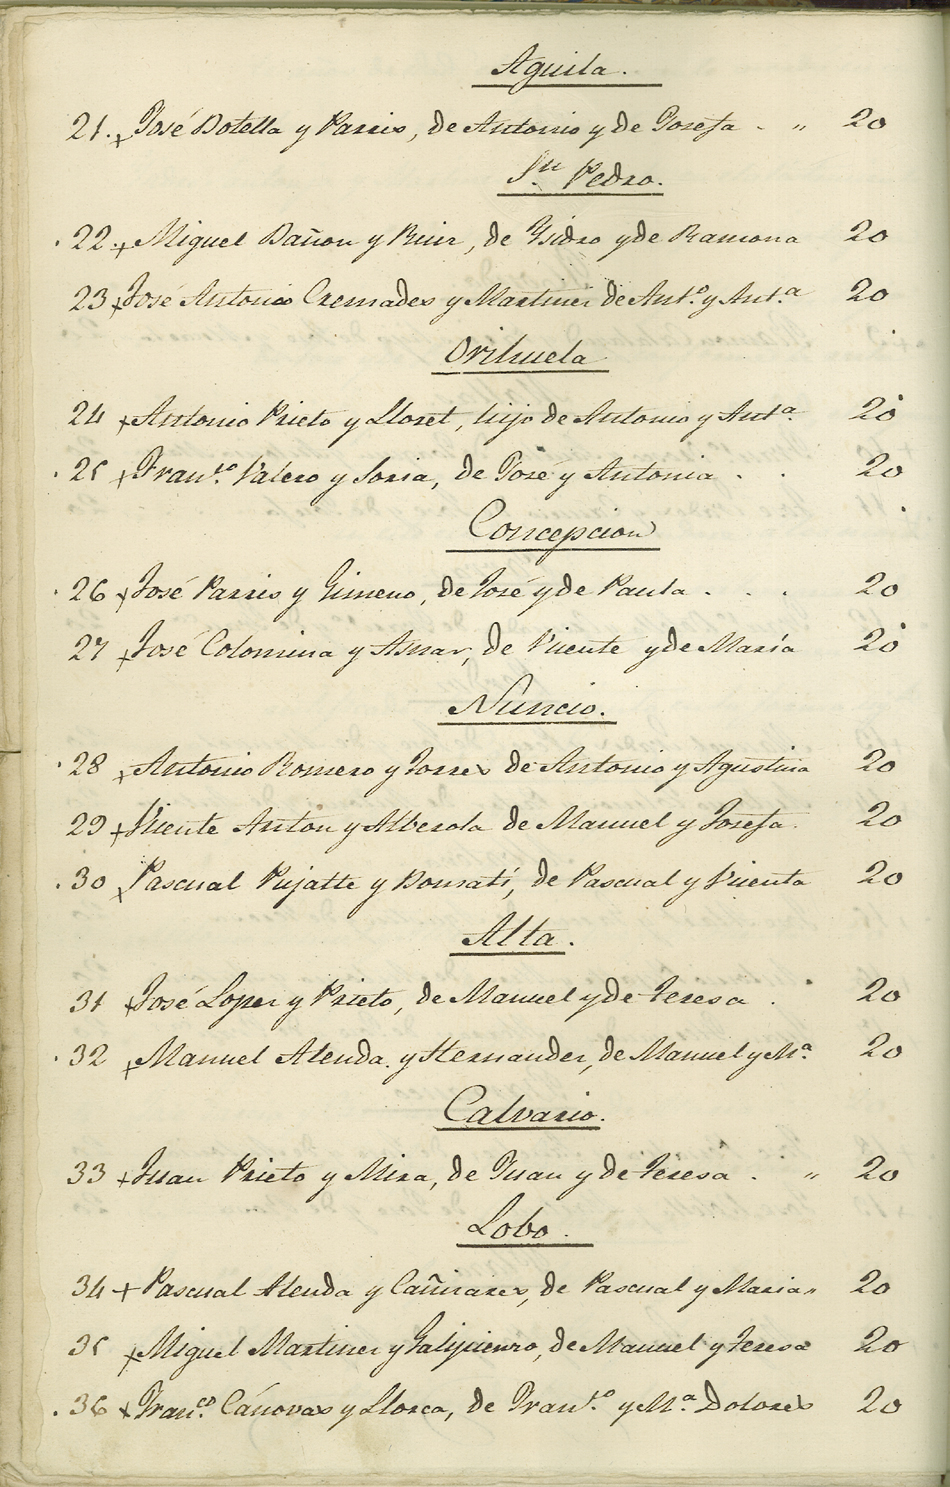 Aguila.
21. + José Botella y Parres, de Antonio y de Josefa . „ 20
Sn. Pedro.
22. + Miguel Bañon y Ruiz, de Ysidro y de Ramona 20
23 + José Antonio Cremades y Martinez de Ant.º y Ant.ª 20
Orihuela
24 + Antonio Prieto y Lloret, hijo de Antonio y Ant.ª 20
25 + Fran.co Valero y Soria, de José y Antonia . . 20
Concepcion
26 + José Parres y Gimeno, de José y de Paula . . . 20
27 + José Colomina y Asnar, de Vicente y de María 20
Nuncio.
28 + Antonio Romero y Torres de Antonio y Agustina 20
29 + Vicente Anton y Alberola de Manuel y Josefa. 20
30 + Pascual Pujalte y Bonmatí, de Pascual y Vicenta 20
Alta.
31 + José Lopez y Prieto, de Manuel y de Teresa . . 20
32 + Manuel Alenda y Hernandez, de Manuel y M.ª 20
Calvario.
33 + Juan Prieto y Mira, de Juan y de Teresa . „ 20
Lobo.
34 + Pascual Alenda y Cañizares, de Pascual y Maria „ 20
35 + Miguel Martinez y Galipienzo, de Manuel y Teresa 20
36 + Fran.co Cánovas y Llorca, de Fran.co y M.ª Dolores 20